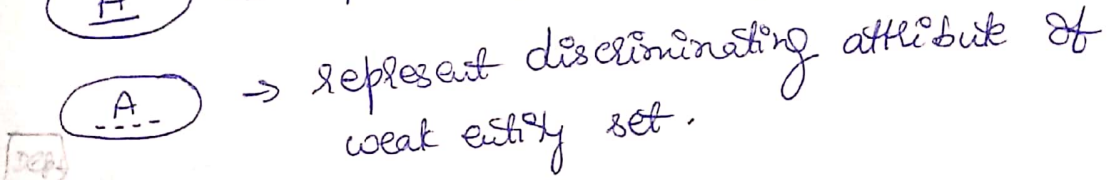 A → represent discriminating attribute of
weak entity set.